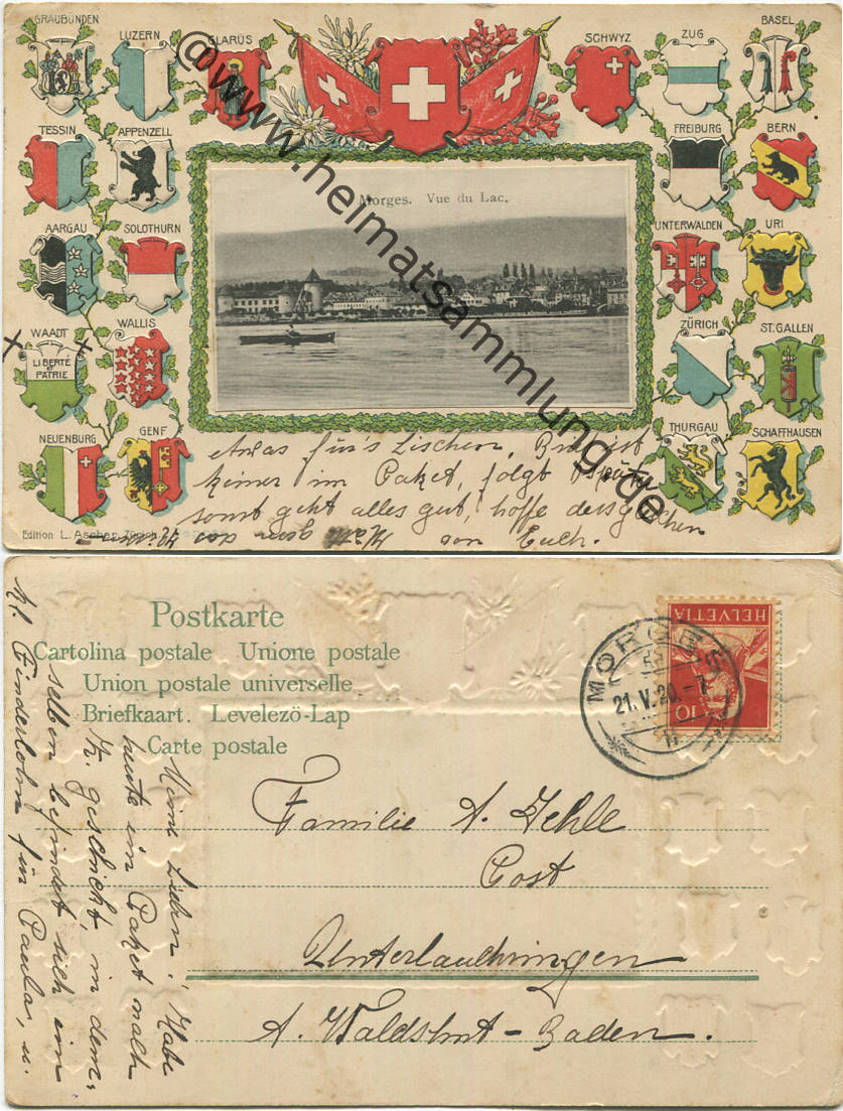 GRAUBÜNDEN
LUZERN
GLARUS
SCHWYZ
ZUG
BASEL
TESSIN
APPENZELL
FREIBURG
BERN
Morges. Vue du Lac.
AARGAU
SOLOTHURN
UNTERWALDEN
URI
WAADT
LIBERTÉ
ET
PATRIE
WALLIS
ZÜRICH
ST. GALLEN
NEUENBURG
GENF
THURGAU
SCHAFFHAUSEN
@www.heimatsammlung.de
Etwas für's Lischen, Brief ist
keiner im Paket, folgt später
sonst geht alles gut, hoffe desgleichen
von Euch.
Edition L. Ascher, Zürich
Postkarte
Cartolina postale Unione postale
Union postale universelle
Briefkaart. Levelezö-Lap
Carte postale
HELVETIA
10
MORGES
21.V.20.-7
Meine Lieben! Habe
heute ein Paket nach
K. geschickt, in dem-
selben befindet sich ein
Kl. Kinderlohn für Paula, u.
Familie A. Jehle
Post
Unterlauchringen
A. Waldshut-Baden.